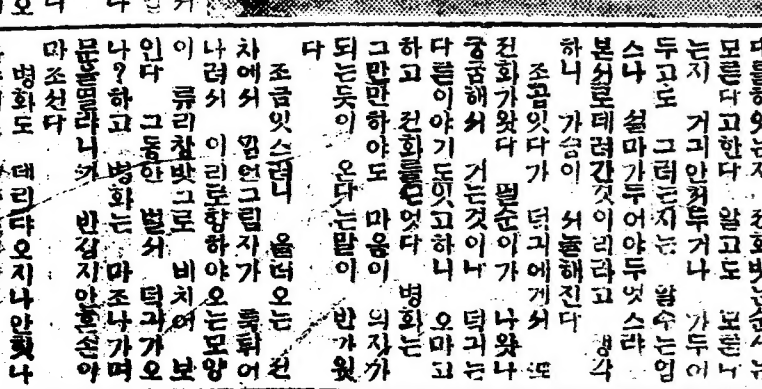 전화밧는순사는
모른다고한다 알고도 모른다
는지 거긔안저두거나 가두어
두고도 그러는지는 알수는업
스나 설마가두어야두엇스랴
본서로데려간것이리라고 생각
하니 가슴이 서늘해진다
조곰잇다가 덕긔에게서 또
전화가왓다 필순이가 나왓나
궁굼해서 거는것이나 덕긔는
다른이야기도잇고하니 오마고
하고 전화를끈엇다 병화는
그만만하야도 마음이 의지가
되는듯이 온다는말이 반가웟
다
조금잇스려니 올러오는 전
차에서 껌언그림자가 툭튀어
나려서 이리로향하야오는모양
이 류리창밧그로 비치어 보
인다 그동안 벌서 덕긔가오
나?하고 병화는 마조나가며
문을열라니까 반갑지안흔손이
마조선다
병화도 데리랴오지나안핫나